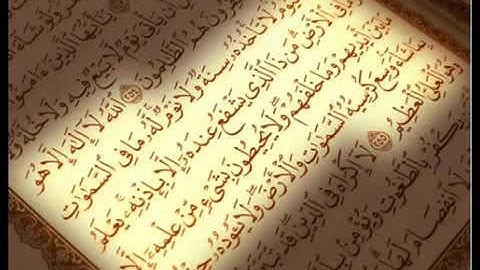 ءَامَنُوٓا۟
يَأْتِىَ يَوْمٌ لَّا بَيْعٌ فِيهِ وَلَا خُلَّةٌ
هُمُ ٱلظَّٰلِمُونَ ٢٥٤ ٱللَّهُ لَآ إِلَٰهَ إِلَّا هُوَ
لَا تَأْخُذُهُۥ سِنَةٌ وَلَا نَوْمٌ لَّهُۥ مَا فِى ٱلسَّمَٰوَٰتِ
فِى ٱلْأَرْضِ مَن ذَا ٱلَّذِى يَشْفَعُ عِندَهُۥٓ إِلَّا بِإِذْنِهِۦ يَعْلَمُ
بَيْنَ أَيْدِيهِمْ وَمَا خَلْفَهُمْ وَلَا يُحِيطُونَ بِشَىْءٍ مِّنْ عِلْمِهِۦٓ إِلَّا
شَآءَ وَسِعَ كُرْسِيُّهُ ٱلسَّمَٰوَٰتِ وَٱلْأَرْضَ وَلَا يَـُٔودُهُۥ
وَهُوَ ٱلْعَلِىُّ ٱلْعَظِيمُ ٢٥٥ لَآ إِكْرَاهَ فِى ٱلدِّينِ قَد تَّبَيَّنَ
يَكْفُرْ بِٱلطَّٰغُوتِ وَيُؤْمِنۢ
لَا ٱنفِصَامَ لَهَا